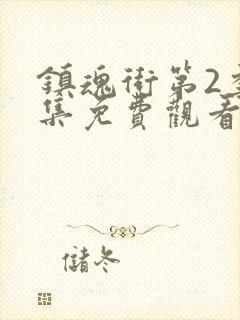 鎮魂街第2季
集免費觀看
儲冬